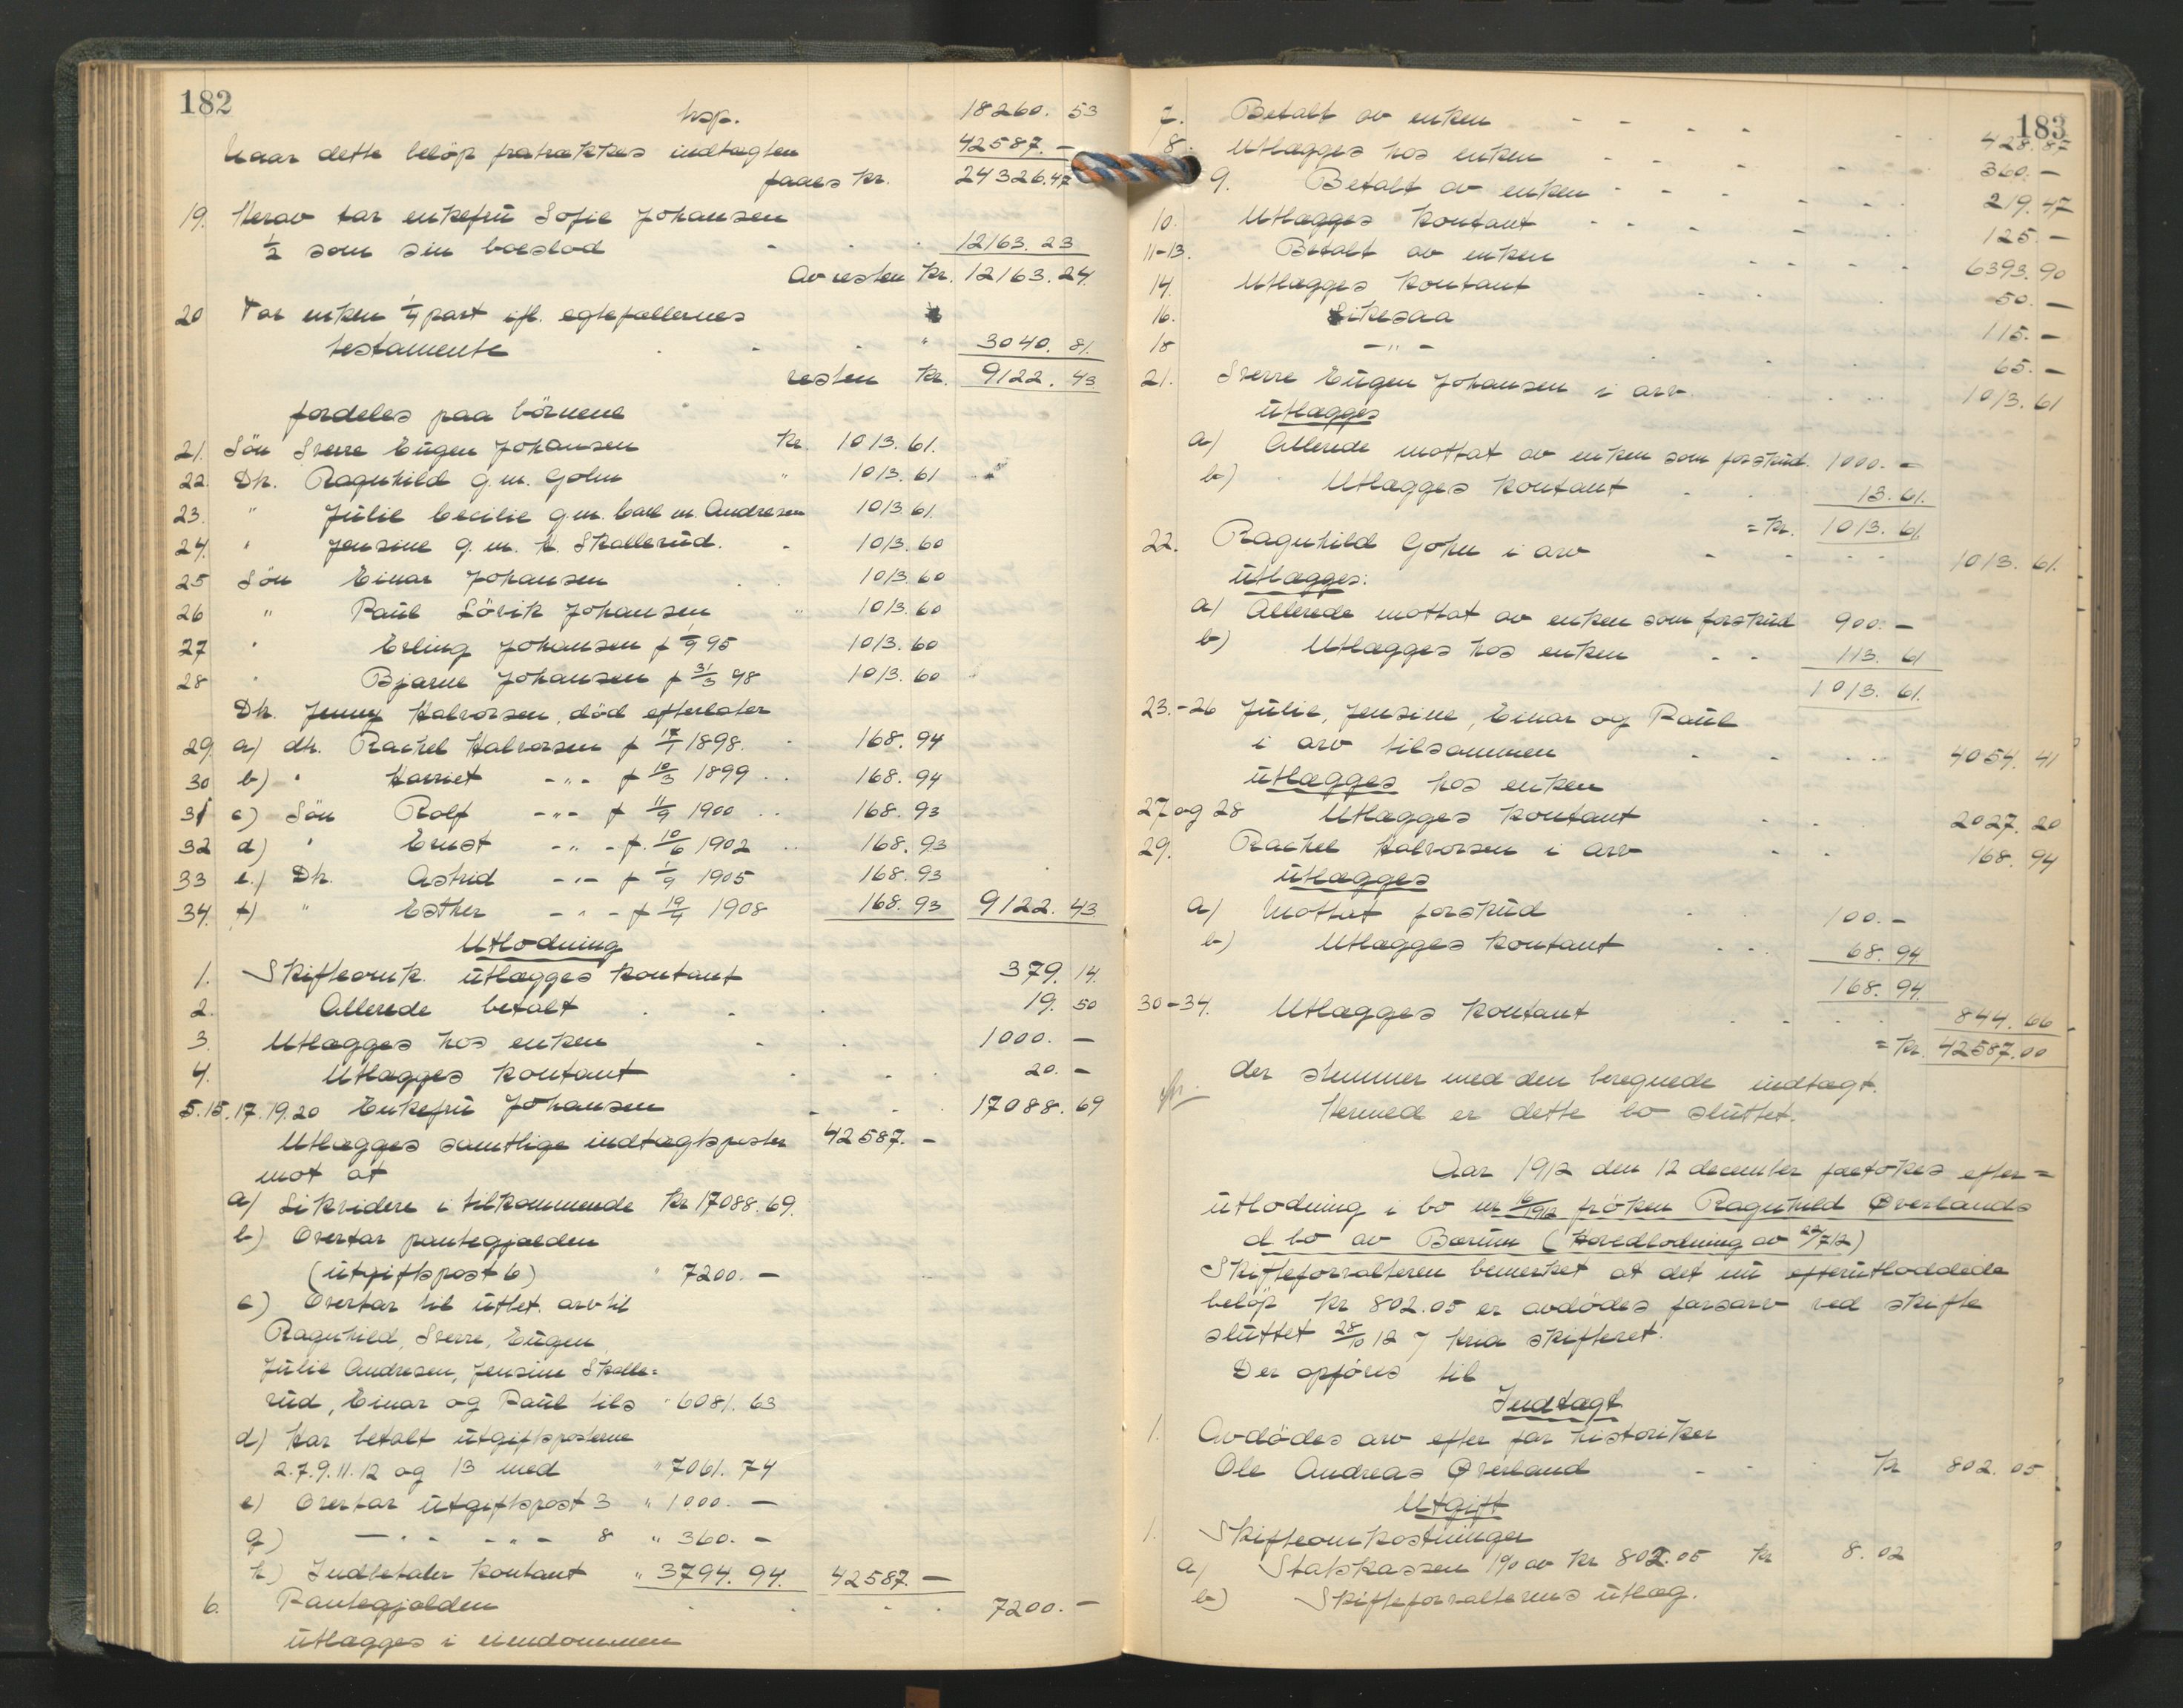 182
trsp. 18260. 53
Naar dette beløp fratrækkes indtægten 42587. —
faaes kr. 24326.47
19. Herav tar enkefrú Sofie Johansen
1/2 som sin boeslod 12163. 23
Av resten kr. 12163. 24.
20 Tar enken 1/4 part ifl. egtefællernes
testamente " 3040. 81.
resten kr. 9122. 43
fordeles paa börnene
21. Sön Sverre Eúgen Johansen kr. 1013. 61.
22 Dtr. Ragnhild g. m. Gohn " 1013. 61
23. " Júlie Cecilie g.m. Carl m. Andresen 1013 61.
24. " Jensine g. m. K. Skallerúd. 1013. 60
25 Sön Einar Johansen 1013. 60
26 " Paúl Lövik Johansen " 1013. 60
27 " Erling Johansen f 1/9 95 1013. 60
28 " Bjarne Johansen f 31/3 98 1013. 60
Dtr. Jenny Halvorsen, död efterlater
29. a) dtr. Rachel Halvorsen f 17/7 1898. 168. 94
30 b) " Harriet -"- f 10/3 1899 168. 94
31 c) Sön Rolf -"- f 11/9 1900 168. 93
32 d) " Ernst -"- f. 10/6 1902 168. 93
33 e.) Dtr. Astrid -"- f 1/9 1905 168. 93
34. f) " Esther -"- f 19/4 1908 168. 93 9122. 43
Utlodning
1. Skifteomk. útlægges kontant 379. 14.
2. Allerede betalt 19. 50
3. Utlægges hos enken 1000. —
4. Utlægges kontant 20. —
5.15.17.19.20 Enkefrú Johansen 17088. 69
Utlægges samtlige indtægtsposter 42587. —
mot at
a) Likvidere i tilkommende kr 17088. 69.
b) Overtar pantegjælden
(útgiftspost 6) " 7200. —
c) Overtar til útbet. arv til
Ragnhild, Sverre, Eúgen,
Júlie Andresen, Jensine Skalle=
rúd, Einar og Paúl tils " 6081. 63
d) Har betalt útgiftsposterne
2. 7. 9. 11. 12 og 13 med " 7061. 74
e) Overtar útgiftspost 3 " 1000. —
g) —"- -"- 8 " 360. —
h) Indbetaler kontant " 3794. 94. 42587. —
6. Pantegjælden 7200. —
útlægges i eiendommen
183
7. Betalt av enken 428. 87
8. Utlægges hos enken 360. —
9. Betalt av enken 219. 47
10. Utlægges kontant 125. —
11-13. Betalt av enken 6393. 90
14. Utlægges kontant 50. —
16. Likesaa 115. —
18 —"— 65. —
21. Sverre Eúgen Johansen i arv 1013. 61
útlægges
a) Allerede mottat av enken som forskúd. 1000. —
b) Utlægges kontant 13. 61.
= kr. 1013. 61
22. Ragnhild Gohn i arv 1013. 61.
útlægges:
a) Allerede mottat av enken som forskúd 900. —
b) Utlægges hos enken 113. 61
1013. 61.
23.-26 Júlie, Jensine, Einar og Paúl
i arv tilsammen 4054. 41
útlægges hos enken
27 og 28 Utlægges kontant 2027. 20
29. Rachel Halvorsen i arv 168. 94
útlægges
a) Mottat forskúd 100. —
b) Utlægges kontant 68. 94
168. 94.
30-34. Utlægges kontant 844. 66
= kr. 42587.00
der stemmer med den beregnede indtægt.
Hermed er dette bo slúttet.
Aar 1912 den 12 december foretokes efter=
útlodning i bo nr 16/1912 fröken Ragnhild Øverlands
d bo av Bærúm (Hovedlodning av 22/7 12)
Skifteforvalteren bemerket at det nú efterútloddede
belöp kr 802.05 er avdödes farsarv ved skifte
slúttet 28/10 12 i Kria skifteret.
Der opföres til
Indtægt
1. Avdödes arv efter far historiker
Ole Andreas Øverland kr 802. 05
Utgift
1. Skifteomkostninger
a) Statskassen 1% av kr 802.05 kr 8. 02
b) Skifteforvalterens útlæg.